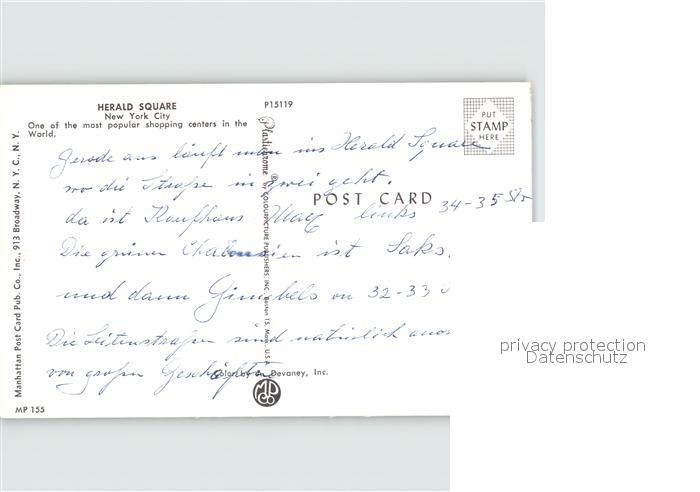 HERALD SQUARE
New York City
One of the most popular shopping centers in the
World.
P15119
PUT
STAMP
HERE
POST CARD
Gerade aus läuft man ins Herald Square
wo die Straße in zwei geht.
da ist Kaufhaus Macy links 34-35 Str
Die grünen ist Saks.
und dann Gimbels on 32-33
Die Seitenstraßen sind natürlich
von großen Geschäften
Plastichrome ® by COLOURPICTURE PUBLISHERS, INC., Boston 15, Mass., U.S.A.
Manhattan Post Card Pub. Co., Inc., 913 Broadway, N. Y. C., N. Y.
Color by Devaney, Inc.
MP CO
MP 155
privacy protection
Datenschutz